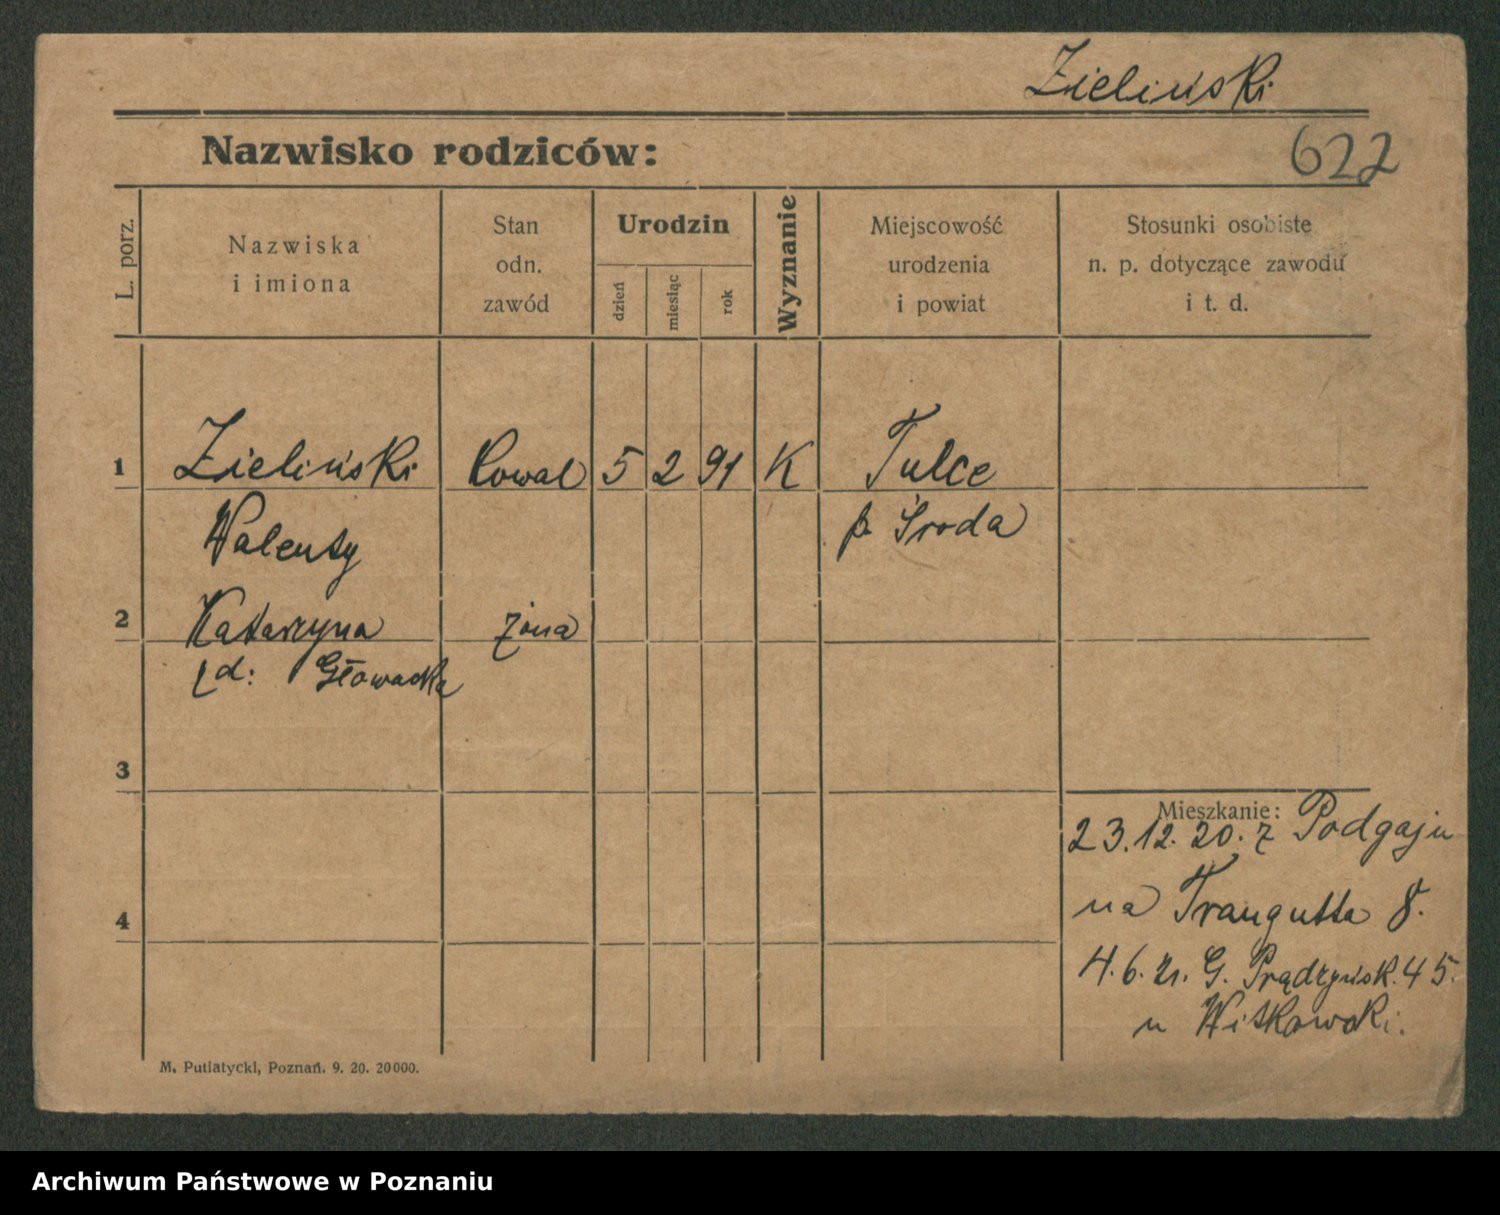 Zieliński
Nazwisko rodziców:
622
L. porz.
Nazwiska
i imiona
Stan
odn.
zawód
Urodzin
dzień
miesiąc
rok
Wyznanie
Miejscowość
urodzenia
i powiat
Stosunki osobiste
n. p. dotyczące zawodu
i t. d.
1 Zieliński Kowal 5 2 91 K Tulce
Walenty p. Środa
2 Katarzyna żona
zd: Głowacka
3
Mieszkanie:
23.12.20. z Podgaju
na Traugutta 8.
4
4.6.21. G. Prądzyńsk. 45.
u Witkowski.
M. Putiatycki, Poznań. 9. 20. 20000.
Archiwum Państwowe w Poznaniu